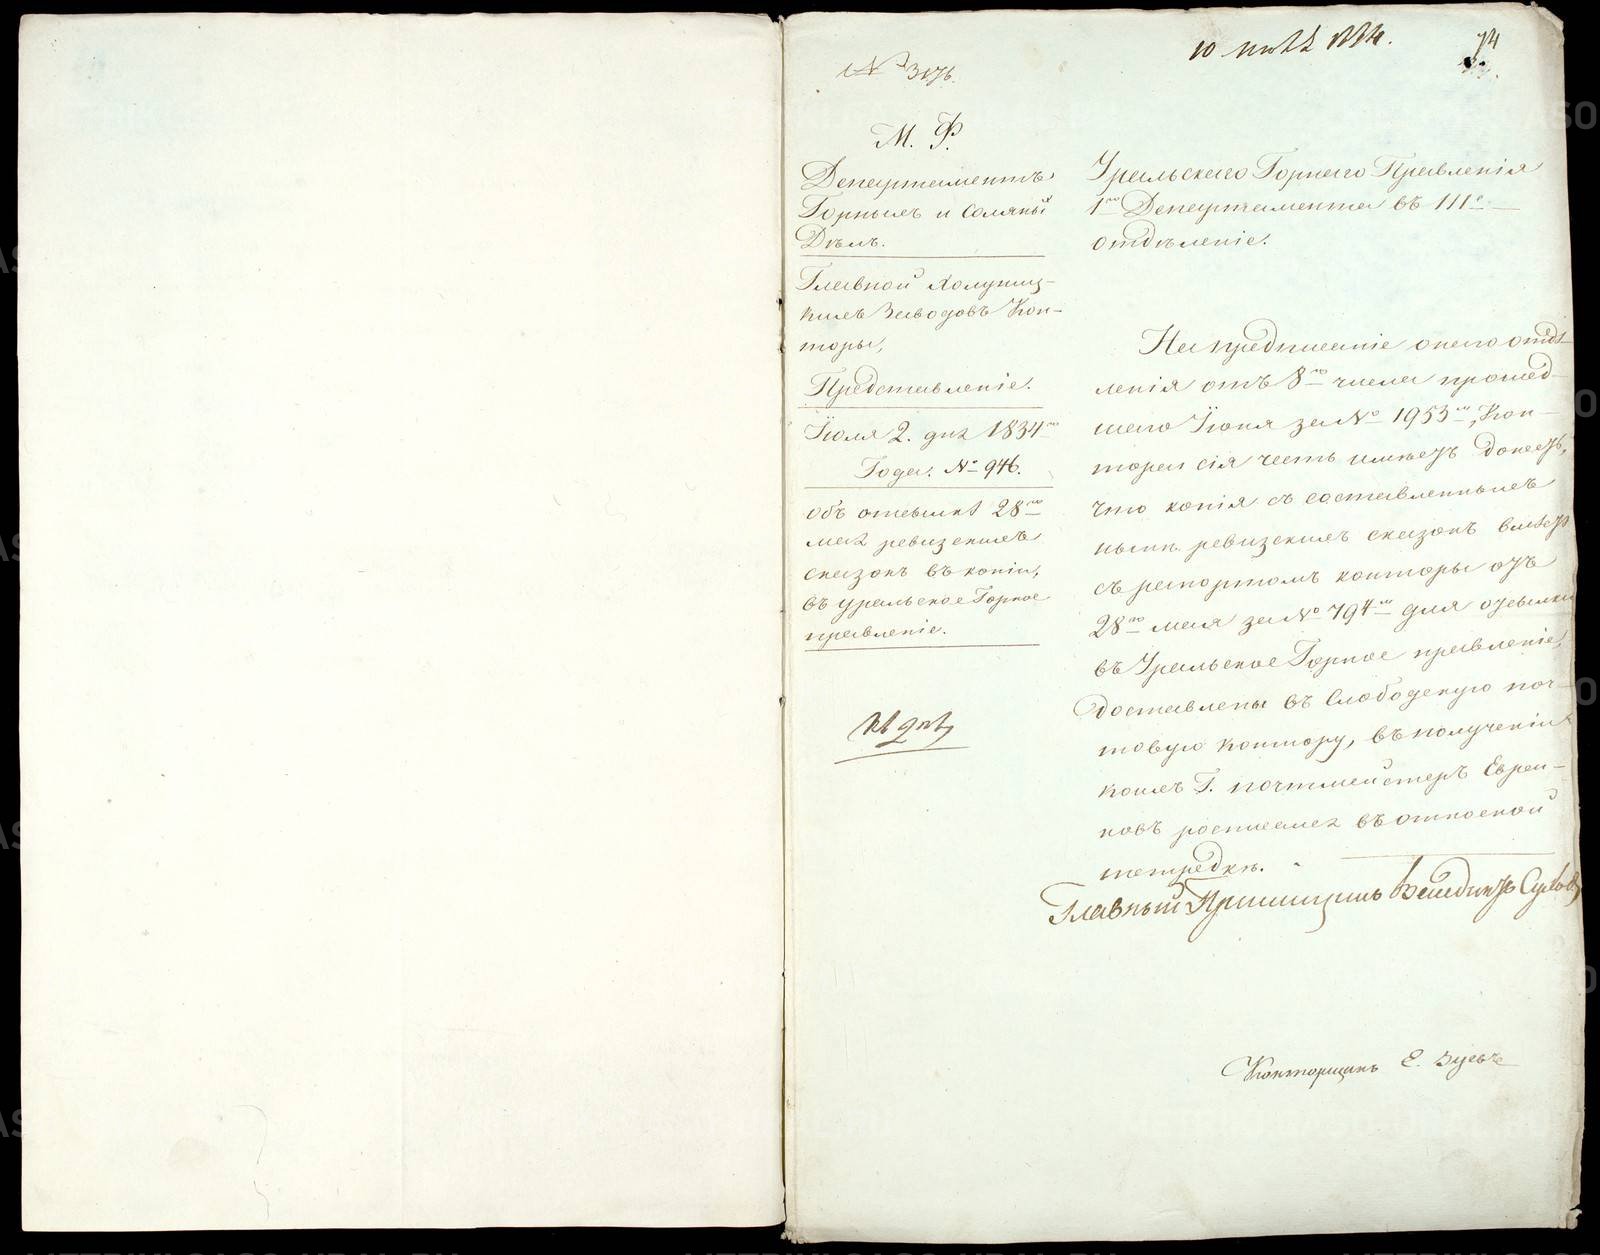 10 июля 1834.
74
№ 3176.
М. Ф.
Департаментъ
Горныхъ и Соляныхъ
Дѣлъ.
Главной Холуниц-
кихъ Заводовъ Кон-
торы,
Представленіе.
Іюля 2. дня 1834го
Года. № 946.
Объ отсылкѣ 28го
мая ревизскихъ
сказокъ въ копіи,
въ уральское Горное
правленіе.
Уральскаго Горнаго Правленія
1го Департамента въ IIIе
отдѣленіе.
На предписаніе онаго отдѣ-
ленія отъ 8го числа прошед-
шаго Іюня за № 1953мъ, Кон-
тора сія честь имѣетъ донесть,
что копія съ составленныхъ
ревизскихъ сказокъ вмѣстѣ
съ репортомъ конторы отъ
28го мая за № 794мъ для отсылки
въ Уральское Горное правленіе,
доставлены въ Слободскую поч-
товую контору, въ полученіи
коихъ Г. почтмейстеръ Евреи-
новъ росписался въ относной
тетрадкѣ.
Главный Прикащикъ Венедиктъ
Конторщикъ Е. Зуевъ